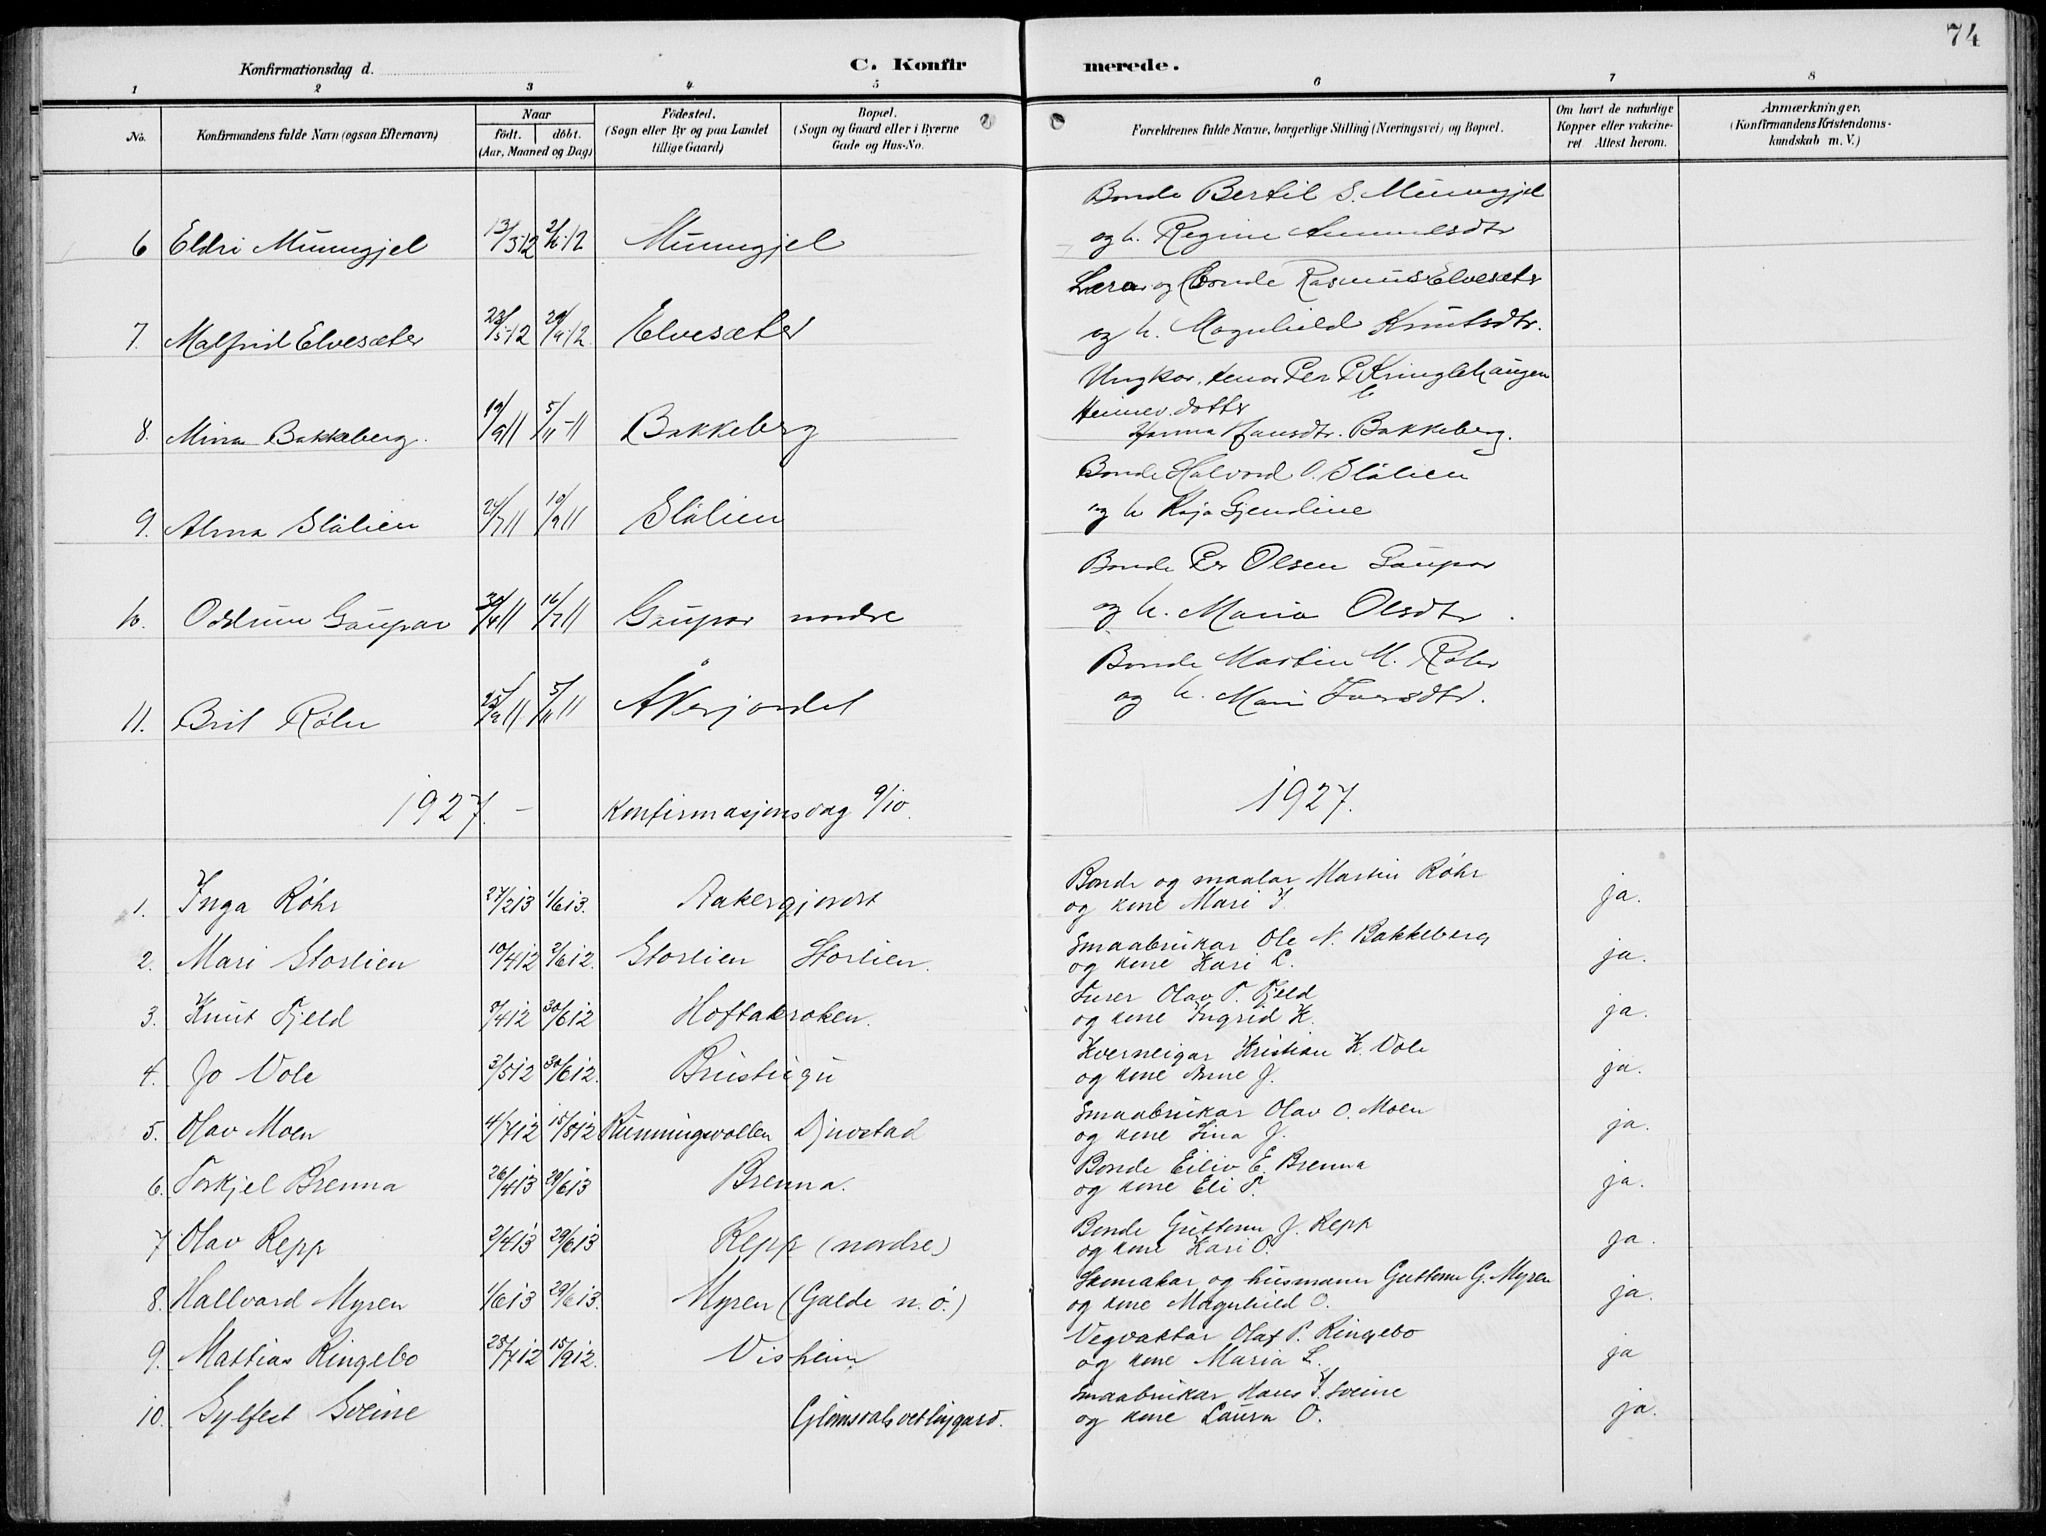 74
Konfirmationsdag d.
C. Konfirmerede.
1 2 3 4 5 6 7 8
No.
Konfirmandens fulde Navn (ogsaa Efternavn)
Naar
födt. döbt.
(Aar, Maaned og Dag)
Födested.
(Sogn eller By og paa Landet
tillige Gaard)
Bopæl.
(Sogn og Gaard eller i Byerne
Gade og Hus-No.
Forældrenes fulde Navne, borgerlige Stilling (Næringsvei) og Bopæl.
Om havt de naturlige
Kopper eller vakcine-
ret Attest herom.
Anmærkninger.
(Konfirmandens Kristendoms-
kundskab m. V.)
Bonde Bertil S. Munngjel
6 Eldri Munngjel 13/5 12 2/6 12 Munngjel og h. Regine
Lærer og Bonde Rasmus Elvesæter
7. Malfrid Elvesæter 23/5 12 Elvesæter og h. Magnhild Knutsdtr.
Ungkar, Per P. Kringlehaugen
8. Mina Bakkeberg. 19/9 11 5/11 11 Bakkeberg
Hanna Hansdtr. Bakkeberg.
Bonde Halvord O. Slålien
9. Alma Slålien 24/7 11 10/9 11 Slålien og h Kaja Gjendine
Bonde Per Olsen Gaupar
10. Oddrun Gaupar 30/4 11 16/7 11 Gaupar nordre og h. Maria Olsdtr.
Bonde Martin M. Røhr
11. Brit Røhr 25/9 11 5/11 11 Åkerjordet og h. Mari Iversdtr.
1927. – Konfirmasjonsdag 9/10. 1927.
Bonde og maalar Martin Röhr
1. Inga Röhr 27/2 13 1/6 13. Aakergjordt og kone Mari I. ja.
Smaabrukar Ole N. Bakkeberg
2. Mari Storlien 10/4 12 2/6 12. Storlien Storlien. og kone Kari L. ja.
Furer Olav T. Fjeld
3. Knut Fjeld 8/4 12 30/6 12 Hoftakroken. og kone Ingrid K. ja.
Kverneigar Kristian K. Vole
4. Jo Vole 3/5 12 30/6 12. Brustugu og kone Anne J. ja.
Smaabrukar Olav O. Moen
5. Olav Moen 4/7 12 15/8 12 Runningsvollen Djuvstad og kone Lina J. ja.
Bonde Eiliv E. Brenna
6. Torkjel Brenna 26/4 13 29/6 13 Brenna. og kone Eli T. ja.
Bonde Guttorm J. Repp
7 Olav Repp 2/4 13 29/6 13 Repp (nordre) og kone Kari O. ja.
Skomakar og husmann Guttorm G. Myren
8. Hallvard Myren 1/6 13 29/6 13. Myren (Galde n. ö.) og kone Magnhild O. ja.
Vegvaktar Olaf P. Ringebo
9. Mattias Ringebo 28/7 12 15/9 12. Visheim og kone Maria L. ja
Smaabrukar Hans I. Sveine
10. Sylfest Sveine Glömsdalsvetlugard. og kone Laura O. ja.